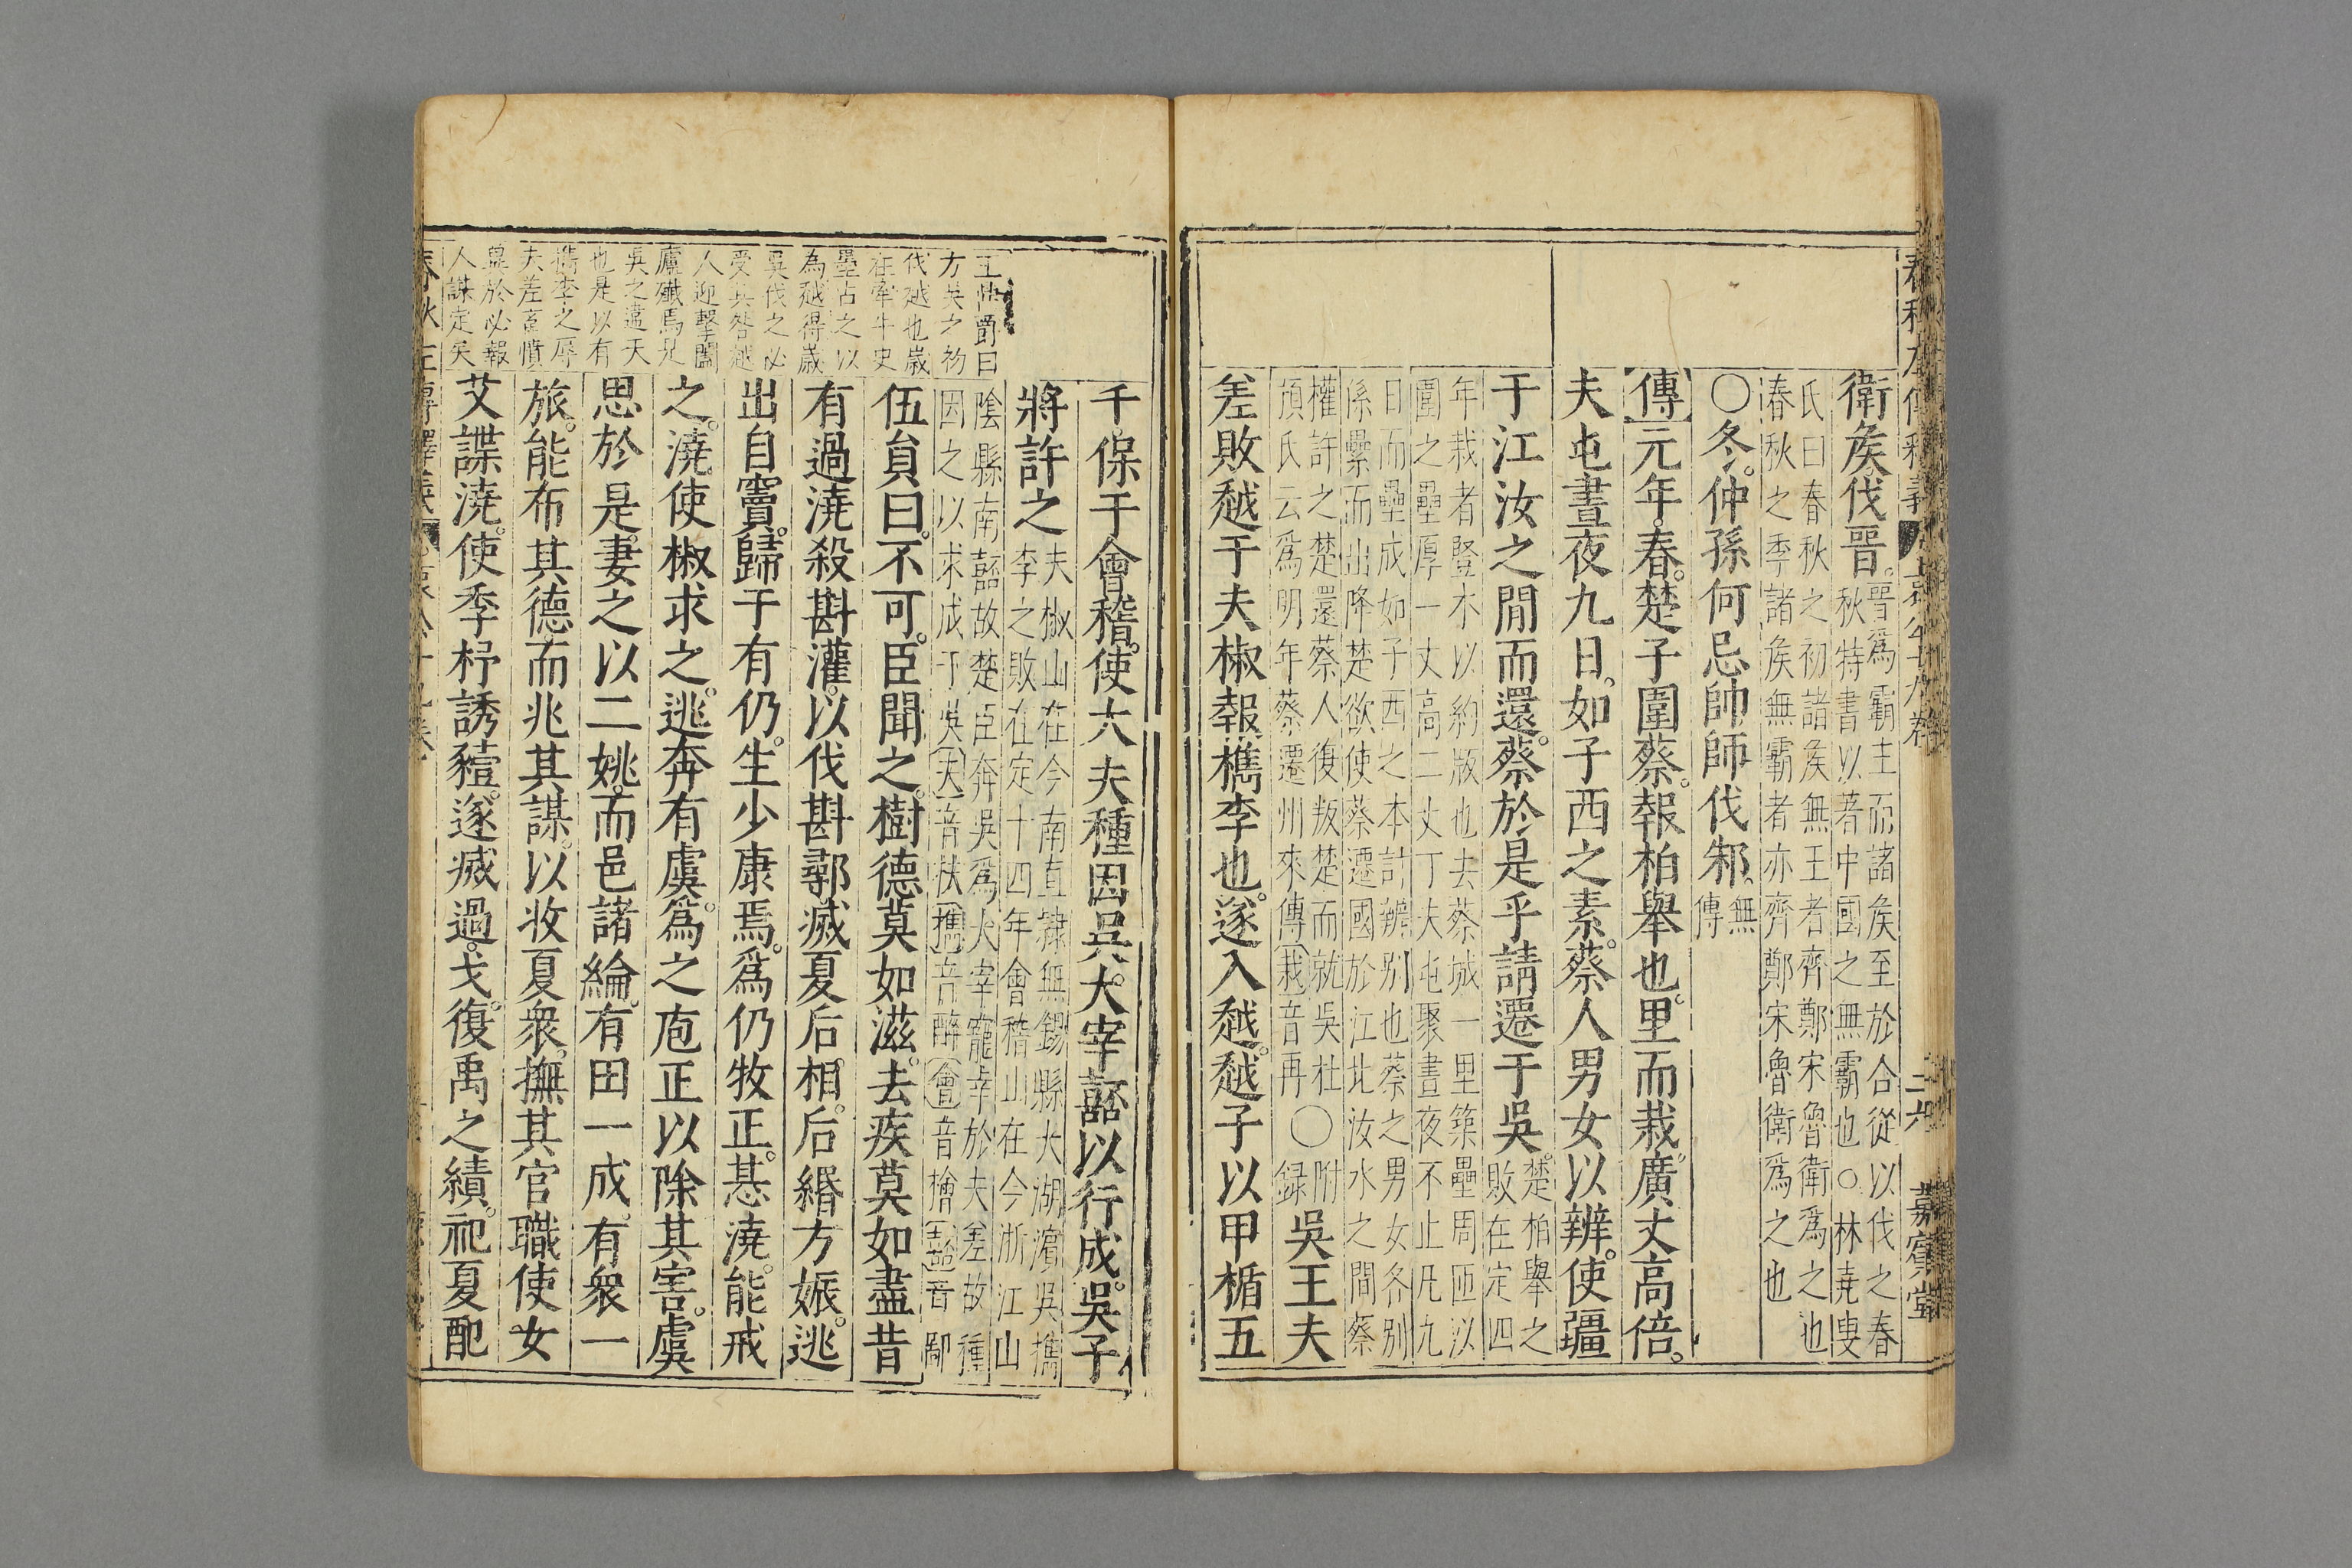 衛矦伐晉晉爲霸主而諸矦至於合從以伐之春
秋特書以著中國之無霸也○林堯叟
氏曰春秋之初諸矦無王者齊鄭宋魯衛爲之也
春秋之季諸矦無霸者亦齊鄭宋魯衛爲之也
○冬仲孫何忌帥師伐邾無
傳
傳元年春楚子圍蔡報柏舉也里而栽廣丈高倍
夫屯晝夜九日如子西之素蔡人男女以辨使疆
于江汝之閒而還蔡於是乎請遷于吳楚柏舉之
敗在定四
年栽者豎木以約版也去蔡城一里築壘周匝以
圍之壘厚一丈高二丈丁夫屯聚晝夜不止凡九
日而壘成如子西之本計辨别也蔡之男女各别
係纍而出降楚欲使蔡遷國於江北汝水之間蔡
權許之楚還蔡人復叛楚而就吳杜
項氏云爲明年蔡遷州來傳栽音再○附
録吳王夫
差敗越于夫椒報檇李也遂入越越子以甲楯五
千保于會稽使大夫種因吳大宰嚭以行成吳子
將許之夫椒山在今南直隷無錫縣太湖濵吳檇
李之敗在定十四年會稽山在今浙江山
陰縣南嚭故楚臣奔吳爲大宰寵幸於夫差故種
因之以求成于吳夫音扶檇音醉會音檜嚭音鄙
伍員曰不可臣聞之樹德莫如滋去疾莫如盡昔
有過澆殺斟灌以伐斟鄩滅夏后相后緡方娠逃
出自竇歸于有仍生少康焉爲仍牧正惎澆能戒
之澆使椒求之逃奔有虞爲之庖正以除其害虞
思於是妻之以二姚而邑諸綸有田一成有衆一
旅能布其德而兆其謀以收夏衆撫其官職使女
艾諜澆使季杼誘豷遂滅過戈復禹之績祀夏配
爵曰
方吳之初
伐越也歳
在牽牛史
墨占之以
為越得歳
吳伐之必
受其咎越
人迎擊闔
廬殲焉是
吳之違天
也是以有
檇李之辱
夫差畜憤
異於必報
人謀定矣
二六
嘉賓堂